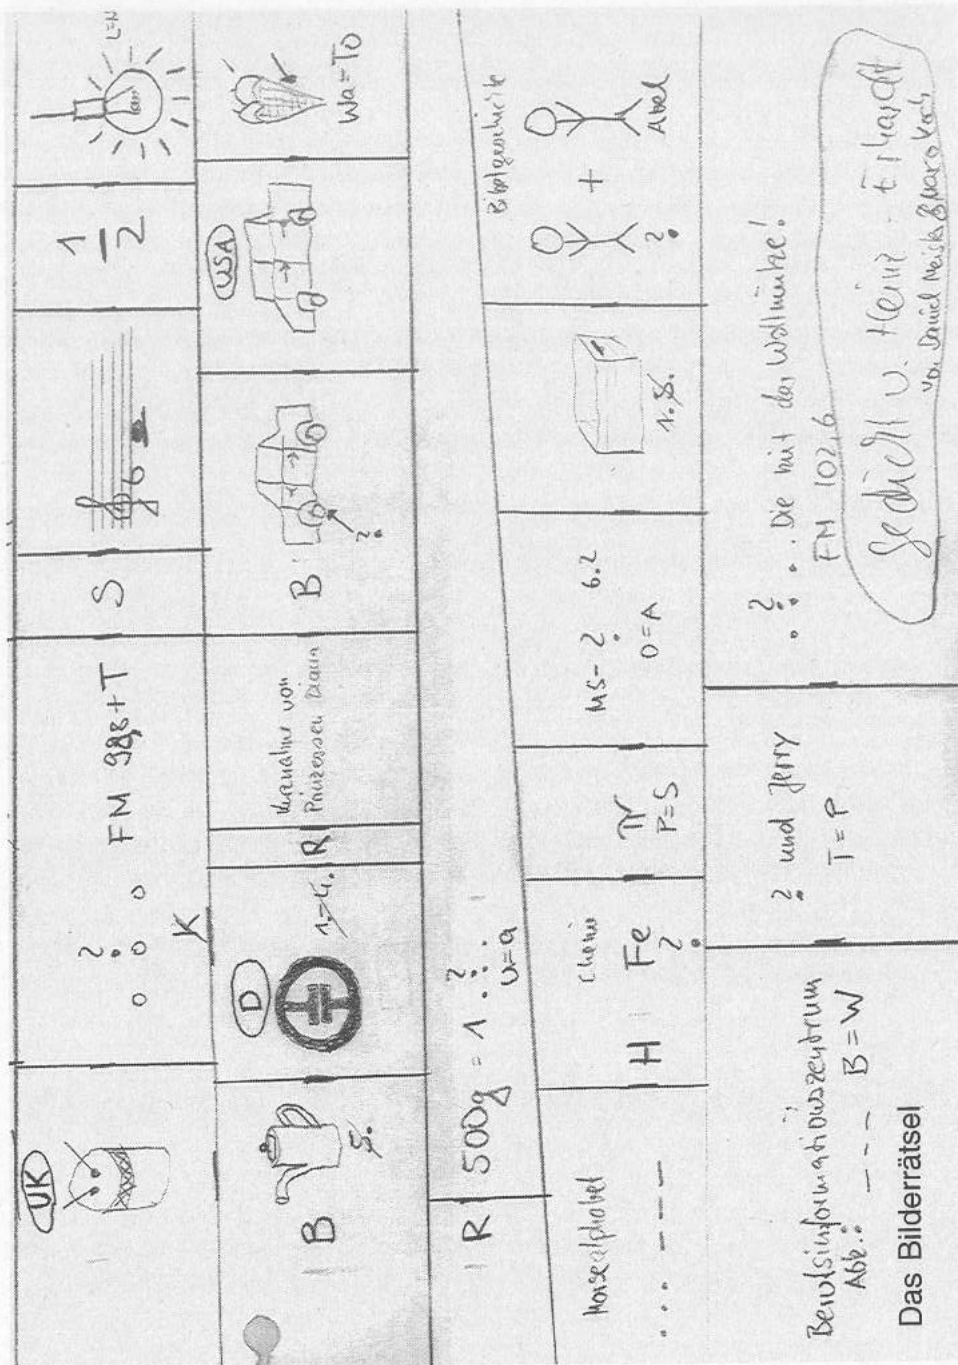 UK
?
o o o FM 98,8+T
K
S
1
2
L=N
B
5.
D
R
Vorname von
Prinzessin Diana
B
?
USA
Wa=To
R 500g = 1 . ? .
u=a
Morsealphabet
.... ----
Chemie
H Fe
?
π
P=S
MS-? 6.2
O=A
1. 8.
Bibelgeschichte
? + Abel
Berufsinformationszentrum
Abk.: _ _ _ B=W
? und Jerry
T=P
. ? . . Die mit der Wollmütze!
FM 102,6
Gedicht v. Heinz Erhardt
von Daniel
Das Bilderrätsel